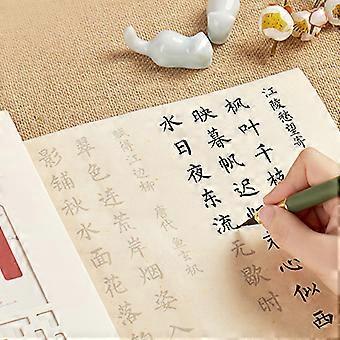 江陵愁望寄
枫叶千枝
映暮帆迟
心似西
水日夜东流无歇时
赋得江边柳 唐代 鱼玄机
翠色连荒岸烟姿入
影铺秋水面花落